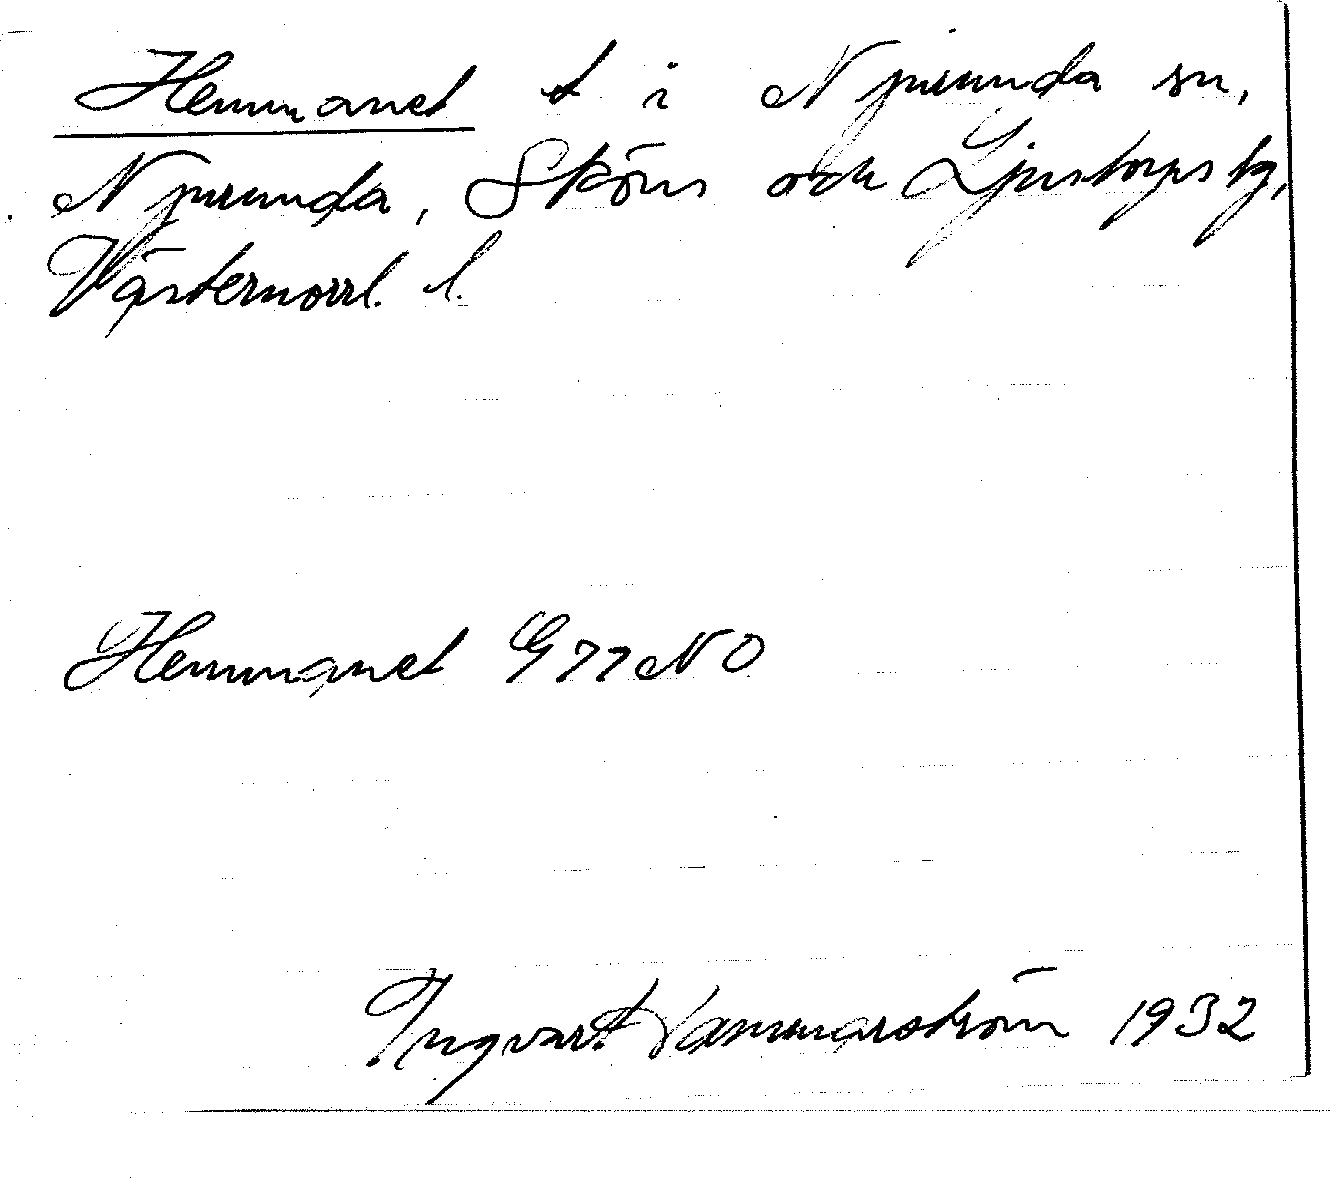 Hemmanet t i Njurunda sn,
Njurunda, Sköns och Ljustorps tg,
Västernorrl. l.
Hemmanet G77NO
Ingvart 1932